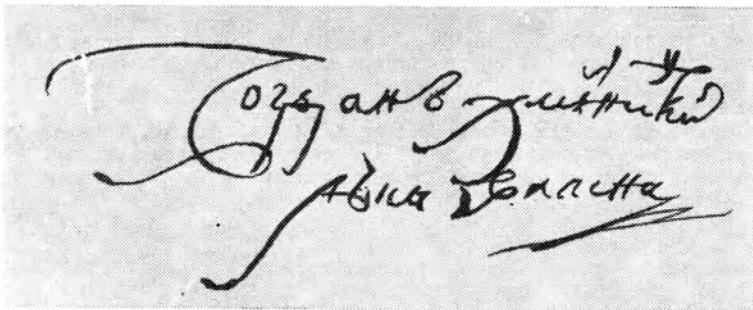 Богданъ Хмелницкий
рука власна